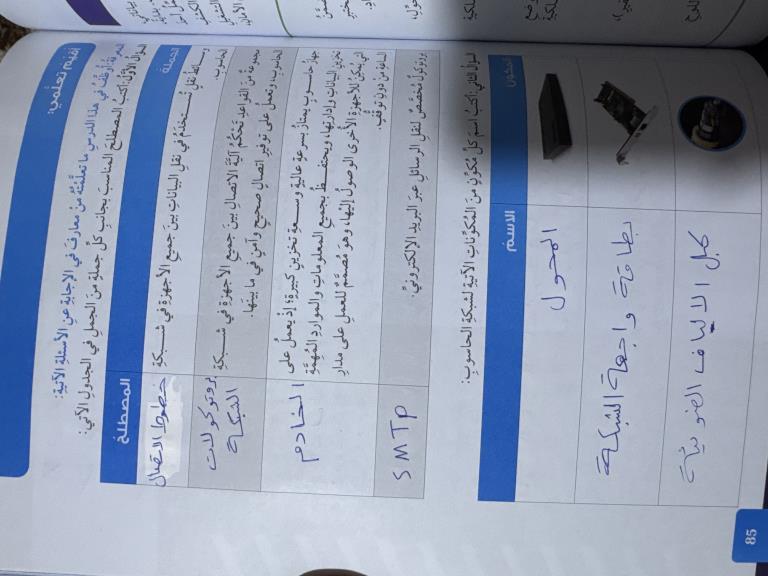 أقيم تعلمي:
المعرفة: أوظف في هذا الدرس ما تعلمته من معارف في الإجابة عن الأسئلة الآتية:
السؤال الأول: أكتب المصطلح المناسب بجانب كل جملة من الجمل في الجدول الآتي:
الجملة
المصطلح
وسائط نقل تستخدم في نقل البيانات بين جميع الأجهزة في شبكة الحاسوب.
خطوط الاتصال
مجموعة من القواعد تحكم آلية الاتصال بين جميع الأجهزة في شبكة
الحاسوب، وتعمل على توفير اتصال صحيح وآمن في ما بينها.
بروتوكولات
الشبكة
جهاز حاسوب يمتاز بسرعة عالية وسعة تخزين كبيرة؛ إذ يعمل على
تخزين البيانات وإدارتها، ويحتفظ بجميع المعلومات والموارد المهمة
التي يمكن للأجهزة الأخرى الوصول إليها، وهو مصمم للعمل على مدار
الساعة من دون توقف.
الخادم
بروتوكول مخصص لنقل الرسائل عبر البريد الإلكتروني.
SMTP
السؤال الثاني: أكتب اسم كل مكون من المكونات الآتية لشبكة الحاسوب:
المكون
الاسم
المحول
بطاقة واجهة الشبكة
كبل الالياف الضوئية
85